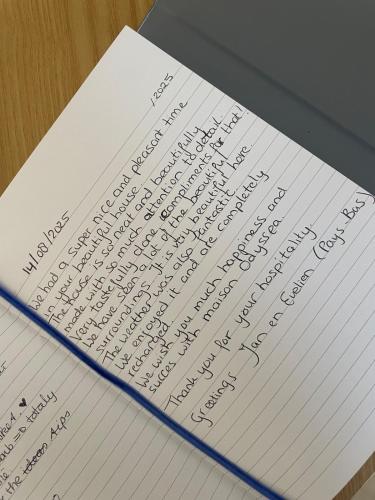 /2025
14/08/2025
We had a super nice and pleasant time
in your beautiful house.
The house is so neat and beautifully
made with so much attention to detail.
Very tastefully done compliments for that!
We have seen a lot of the beautiful
surroundings. It is very beautiful here.
The weather was also fantastit.
We enjoyed it and are completely
recharged.
We wish you much happiness and
succes with maison Odyssea.
Thank you for your hospitality.
Greetings Jan en Evelien (Pays-Bas)
=D totaly
the ideas + tips